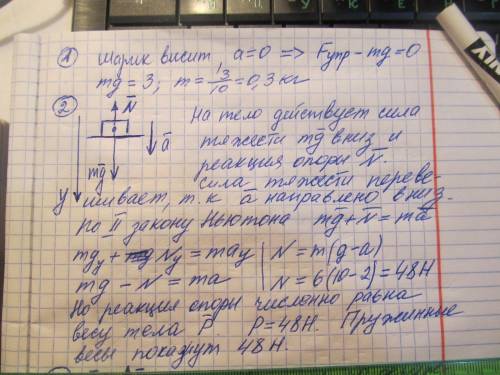 ① Шарик висит, a=0 => Fупр - mg=0
mg = 3; m = 3/10 = 0,3 кг
② N̄ На тело действует сила
тяжести mḡ вниз и
ā реакция опоры N̄.
mḡ сила тяжести переве-
y шивает, т.к ā направлено вниз.
По II закону Ньютона mḡ+N̄ = mā
mgy + Ny = may | N = m(g-a)
mg - N = ma | N = 6(10-2)=48Н
Но реакция опоры численно равна
весу тела P̄ P=48Н. Пружинные
весы покажут 48Н.